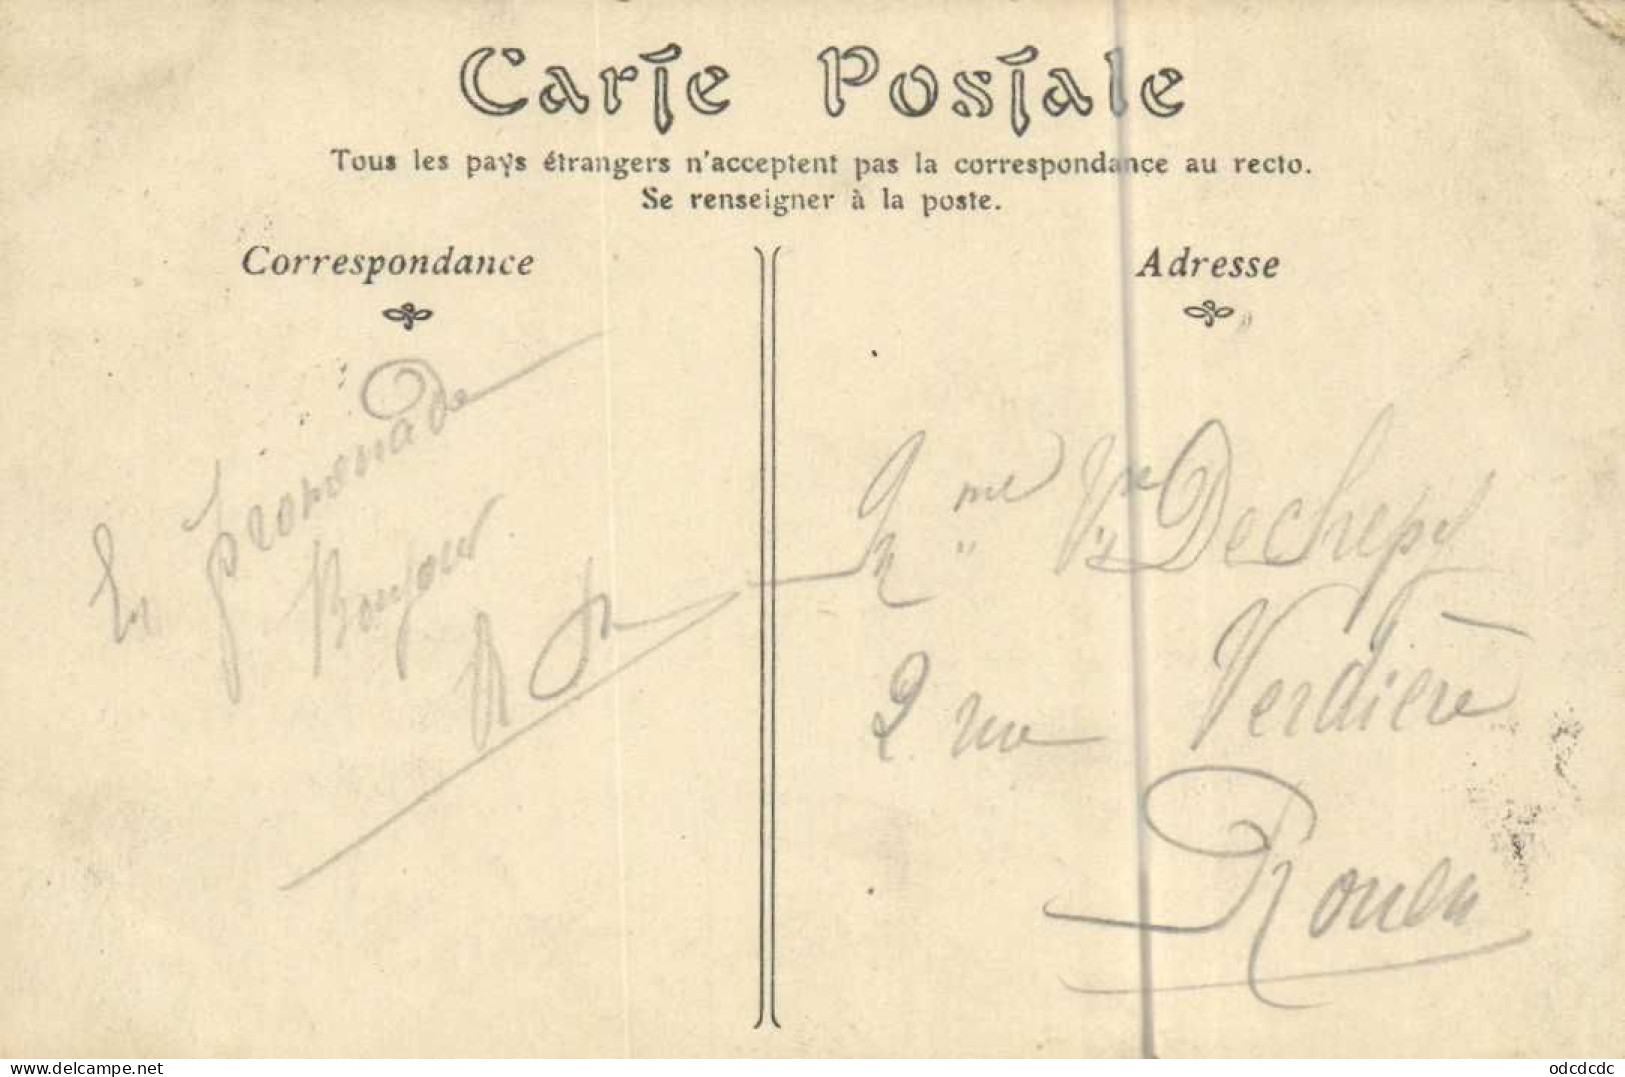 Carte Postale
Tous les pays étrangers n'acceptent pas la correspondance au recto.
Se renseigner à la poste.
Correspondance
En promenade
Bonjour
Adresse
Mme Vve Dechepy
2 rue Verdière
Rouen
www.delcampe.net
odcdcdc